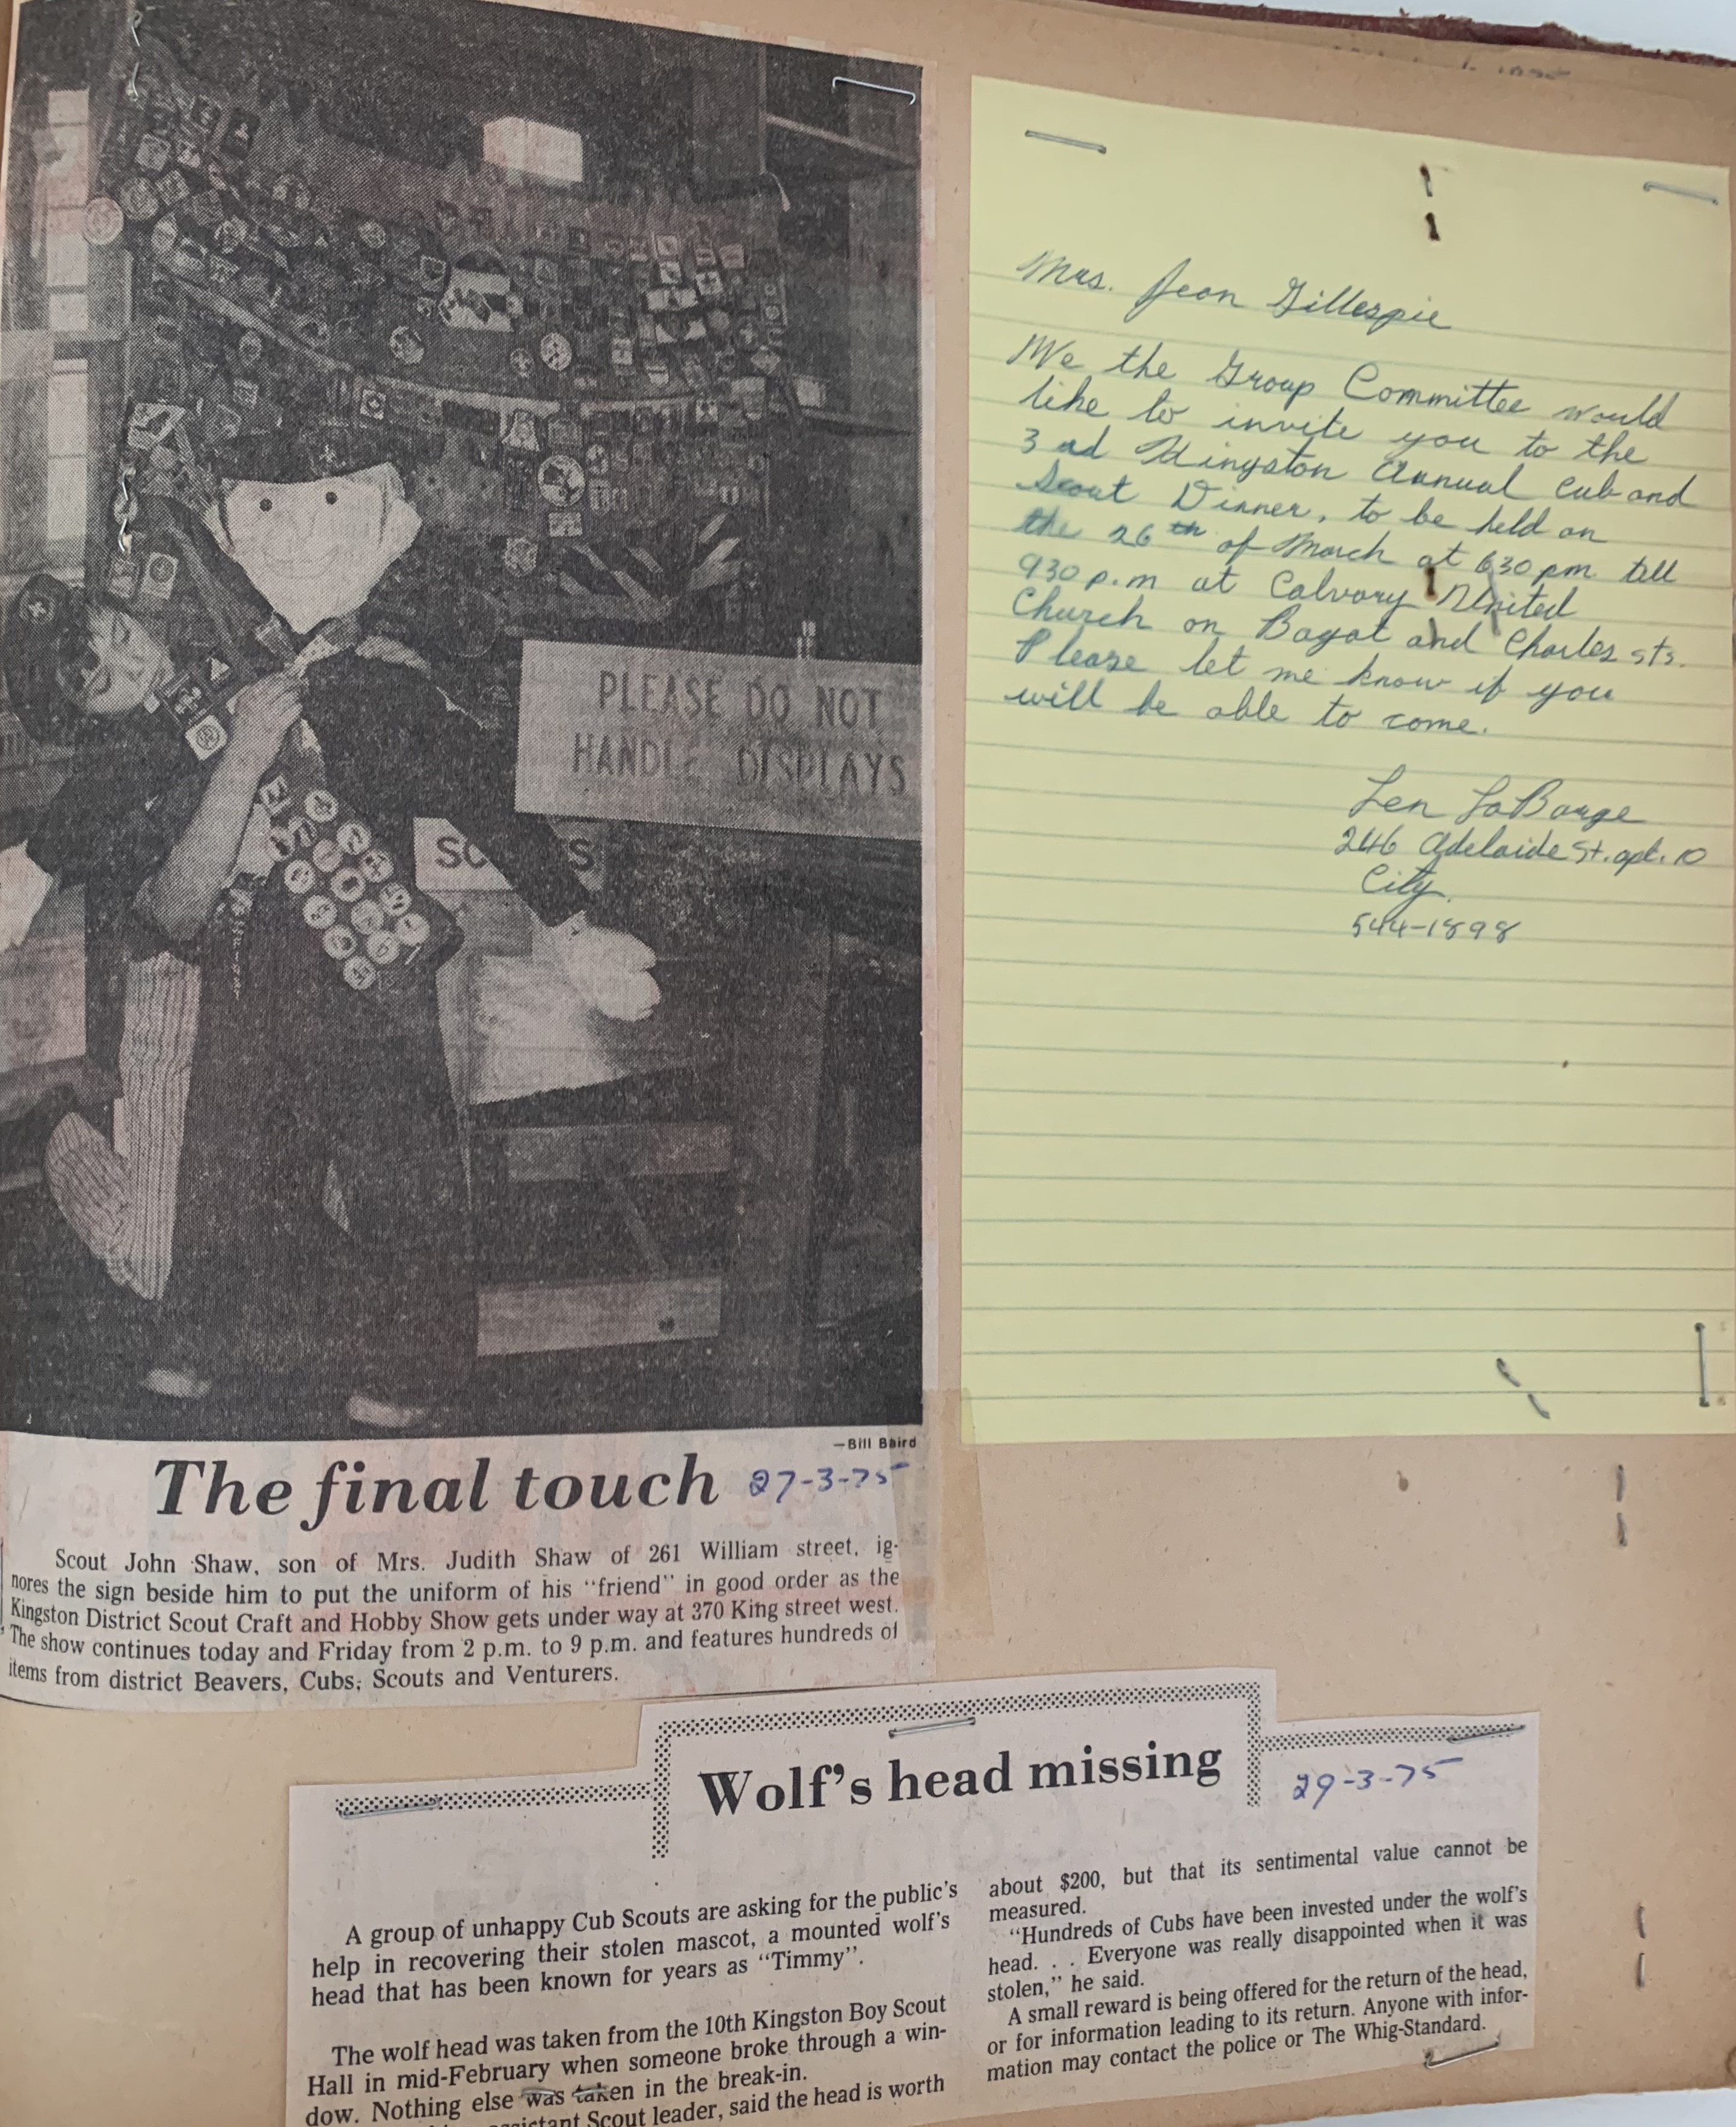 PLEASE DO NOT
HANDLE DISPLAYS
—Bill Baird
The final touch 27-3-75
Scout John Shaw, son of Mrs. Judith Shaw of 261 William street, ig-
nores the sign beside him to put the uniform of his "friend" in good order as the
Kingston District Scout Craft and Hobby Show gets under way at 370 King street west.
The show continues today and Friday from 2 p.m. to 9 p.m. and features hundreds of
items from district Beavers, Cubs, Scouts and Venturers.
Mrs. Jean Gillespie
We the Group Committee would
like to invite you to the
3rd Kingston Annual Cub and
Scout Dinner, to be held on
the 26th of March at 630 pm till
930 p.m at Calvary United
Church on Bagot and Charles sts.
Please let me know if you
will be able to come.
Len LaBarge
246 Adelaide St. apt. 10
City.
544-1898
Wolf's head missing
29-3-75
A group of unhappy Cub Scouts are asking for the public's
help in recovering their stolen mascot, a mounted wolf's
head that has been known for years as "Timmy".
The wolf head was taken from the 10th Kingston Boy Scout
Hall in mid-February when someone broke through a win-
dow. Nothing else was taken in the break-in.
Scout leader, said the head is worth
about $200, but that its sentimental value cannot be
measured.
"Hundreds of Cubs have been invested under the wolf's
head. . . Everyone was really disappointed when it was
stolen," he said.
A small reward is being offered for the return of the head,
or for information leading to its return. Anyone with infor-
mation may contact the police or The Whig-Standard.